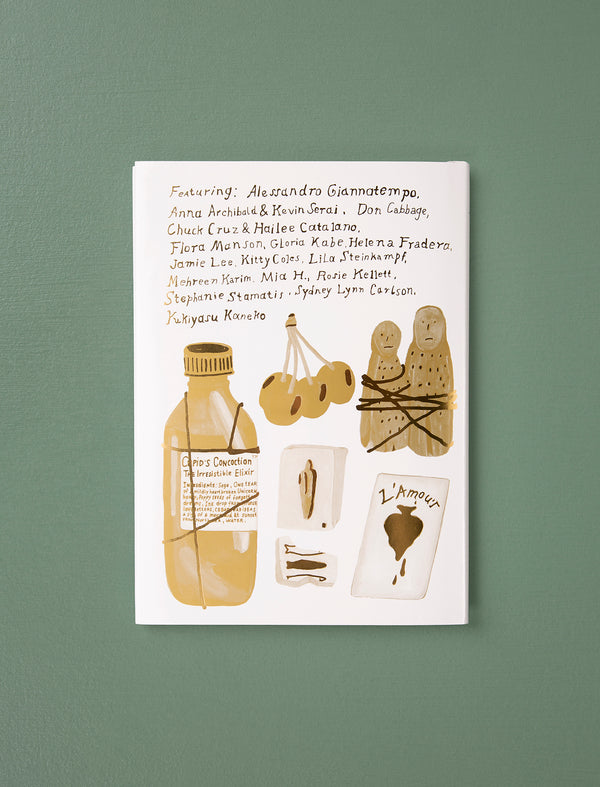 Featuring: Alessandro Giannatempo,
Anna Archibald & Kevin Serai, Don Cabbage,
Chuck Cruz & Hailee Catalano,
Flora Manson, Gloria Kabe, Helena Fradera,
Jamie Lee, Kitty Coles, Lila Steinkampf,
Mehreen Karim, Mia H., Rosie Kellett,
Stephanie Stamatis, Sydney Lynn Carlson,
Yukiyasu Kaneko
Cupid's Concoction
The Irresistible Elixir
Ingredients: Sage, One tear
of a mildly heartbroken Unicorn
honey, Poppy seeds of forgotten
dreams, Ink drop from
water.
L'Amour